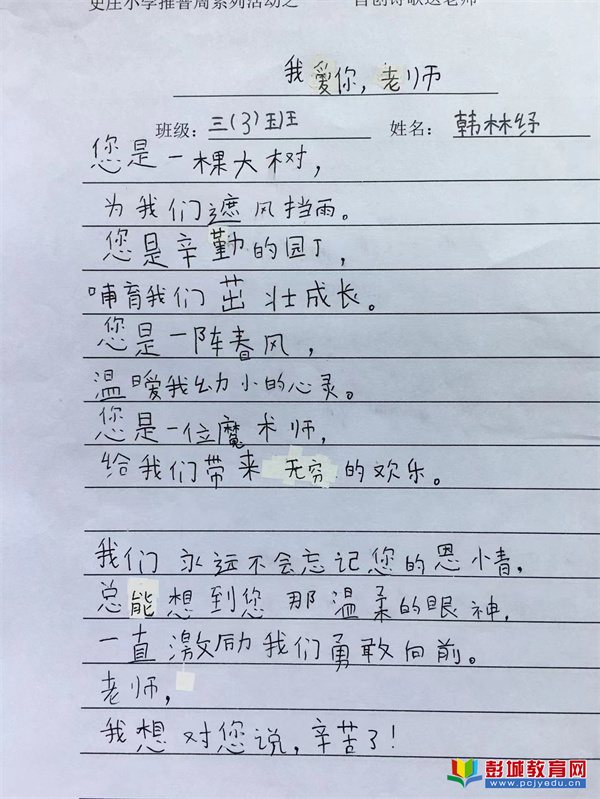 史庄小学推普周系列活动之 自创诗歌送老师
我爱你，老师
班级：三(3)班 姓名：韩林纾
您是一棵大树，
为我们遮风挡雨。
您是辛勤的园丁，
哺育我们茁壮成长。
您是一阵春风，
温暖我幼小的心灵。
您是一位魔术师，
给我们带来无穷的欢乐。
我们永远不会忘记您的恩情，
总能想到您那温柔的眼神，
一直激励我们勇敢向前。
老师，
我想对您说，辛苦了！
彭城教育网
www.pcjyedu.cn